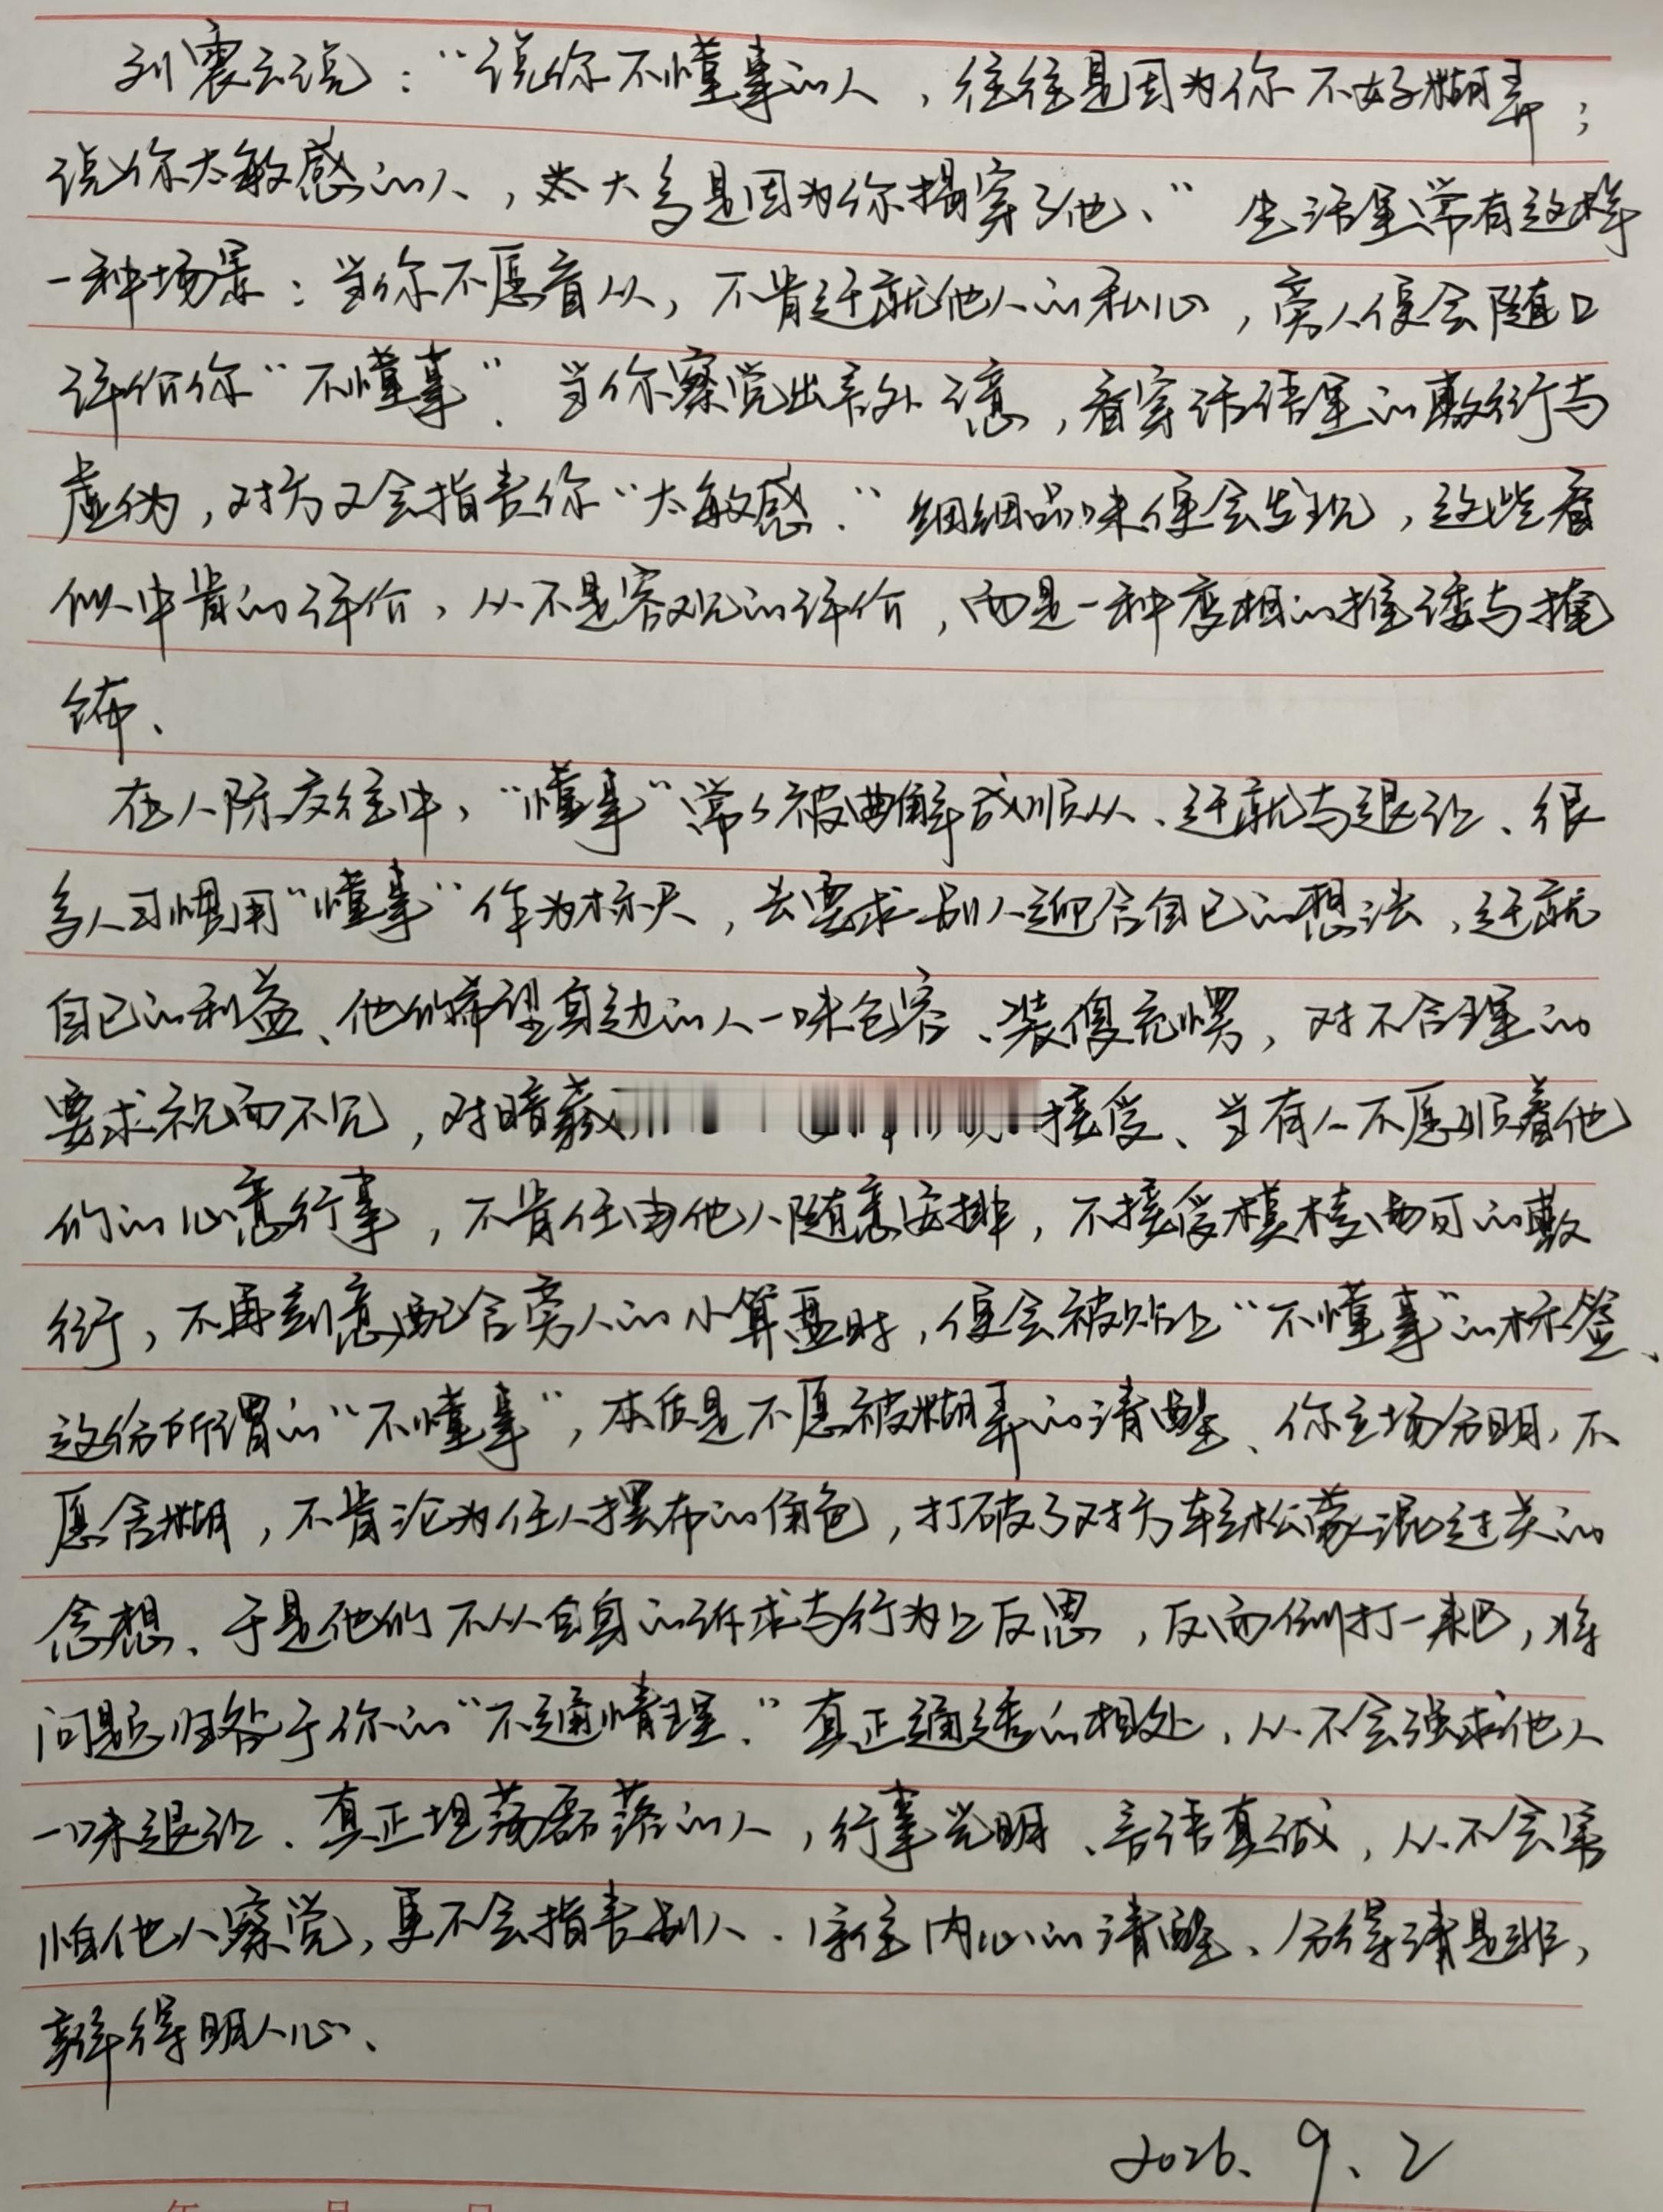 刘震云说："说你不懂事的人，往往是因为你不好糊弄；
说你太敏感的人，大多是因为你揭穿了他、"生活里常有这样
一种场景：当你不愿盲从，不肯迁就他人的私心，旁人便会随口
评价你"不懂事"．当你察觉出言外之意，看穿话语里的敷衍与
虚伪，对方又会指责你"太敏感．"细细品味便会发现，这些看
似中肯的评价，从不是客观的评价，而是一种变相的推诿与掩
饰、
在人际交往中，"懂事"常常被曲解成顺从、迁就与退让、很
多人习惯用"懂事"作为标尺，去要求别人迎合自己的想法，迁就
自己的利益、他们希望身边的人一味包容、装傻充愣，对不合理的
要求视而不见，对暗藏 接受、当有人不愿顺着他
们的心意行事，不肯任由他人随意安排，不接受模棱两可的敷
衍，不再刻意配合旁人的小算盘时，便会被贴上"不懂事"的标签、
这份所谓的"不懂事"，本质是不愿被糊弄的清醒、你立场分明，不
愿含糊，不肯沦为任人摆布的角色，打破了对方轻松蒙混过关的
念想、于是他们不从自身的诉求与行为上反思，反而倒打一耙，将
问题归咎于你的"不通情理．"真正通透的相处，从不会强求他人
一味退让、真正坦荡磊落的人，行事光明、言语真诚，从不会害
怕他人察觉，更不会指责别人．守住内心的清醒、分得清是非，
辨得明人心、
2026．9．2
年 月 日